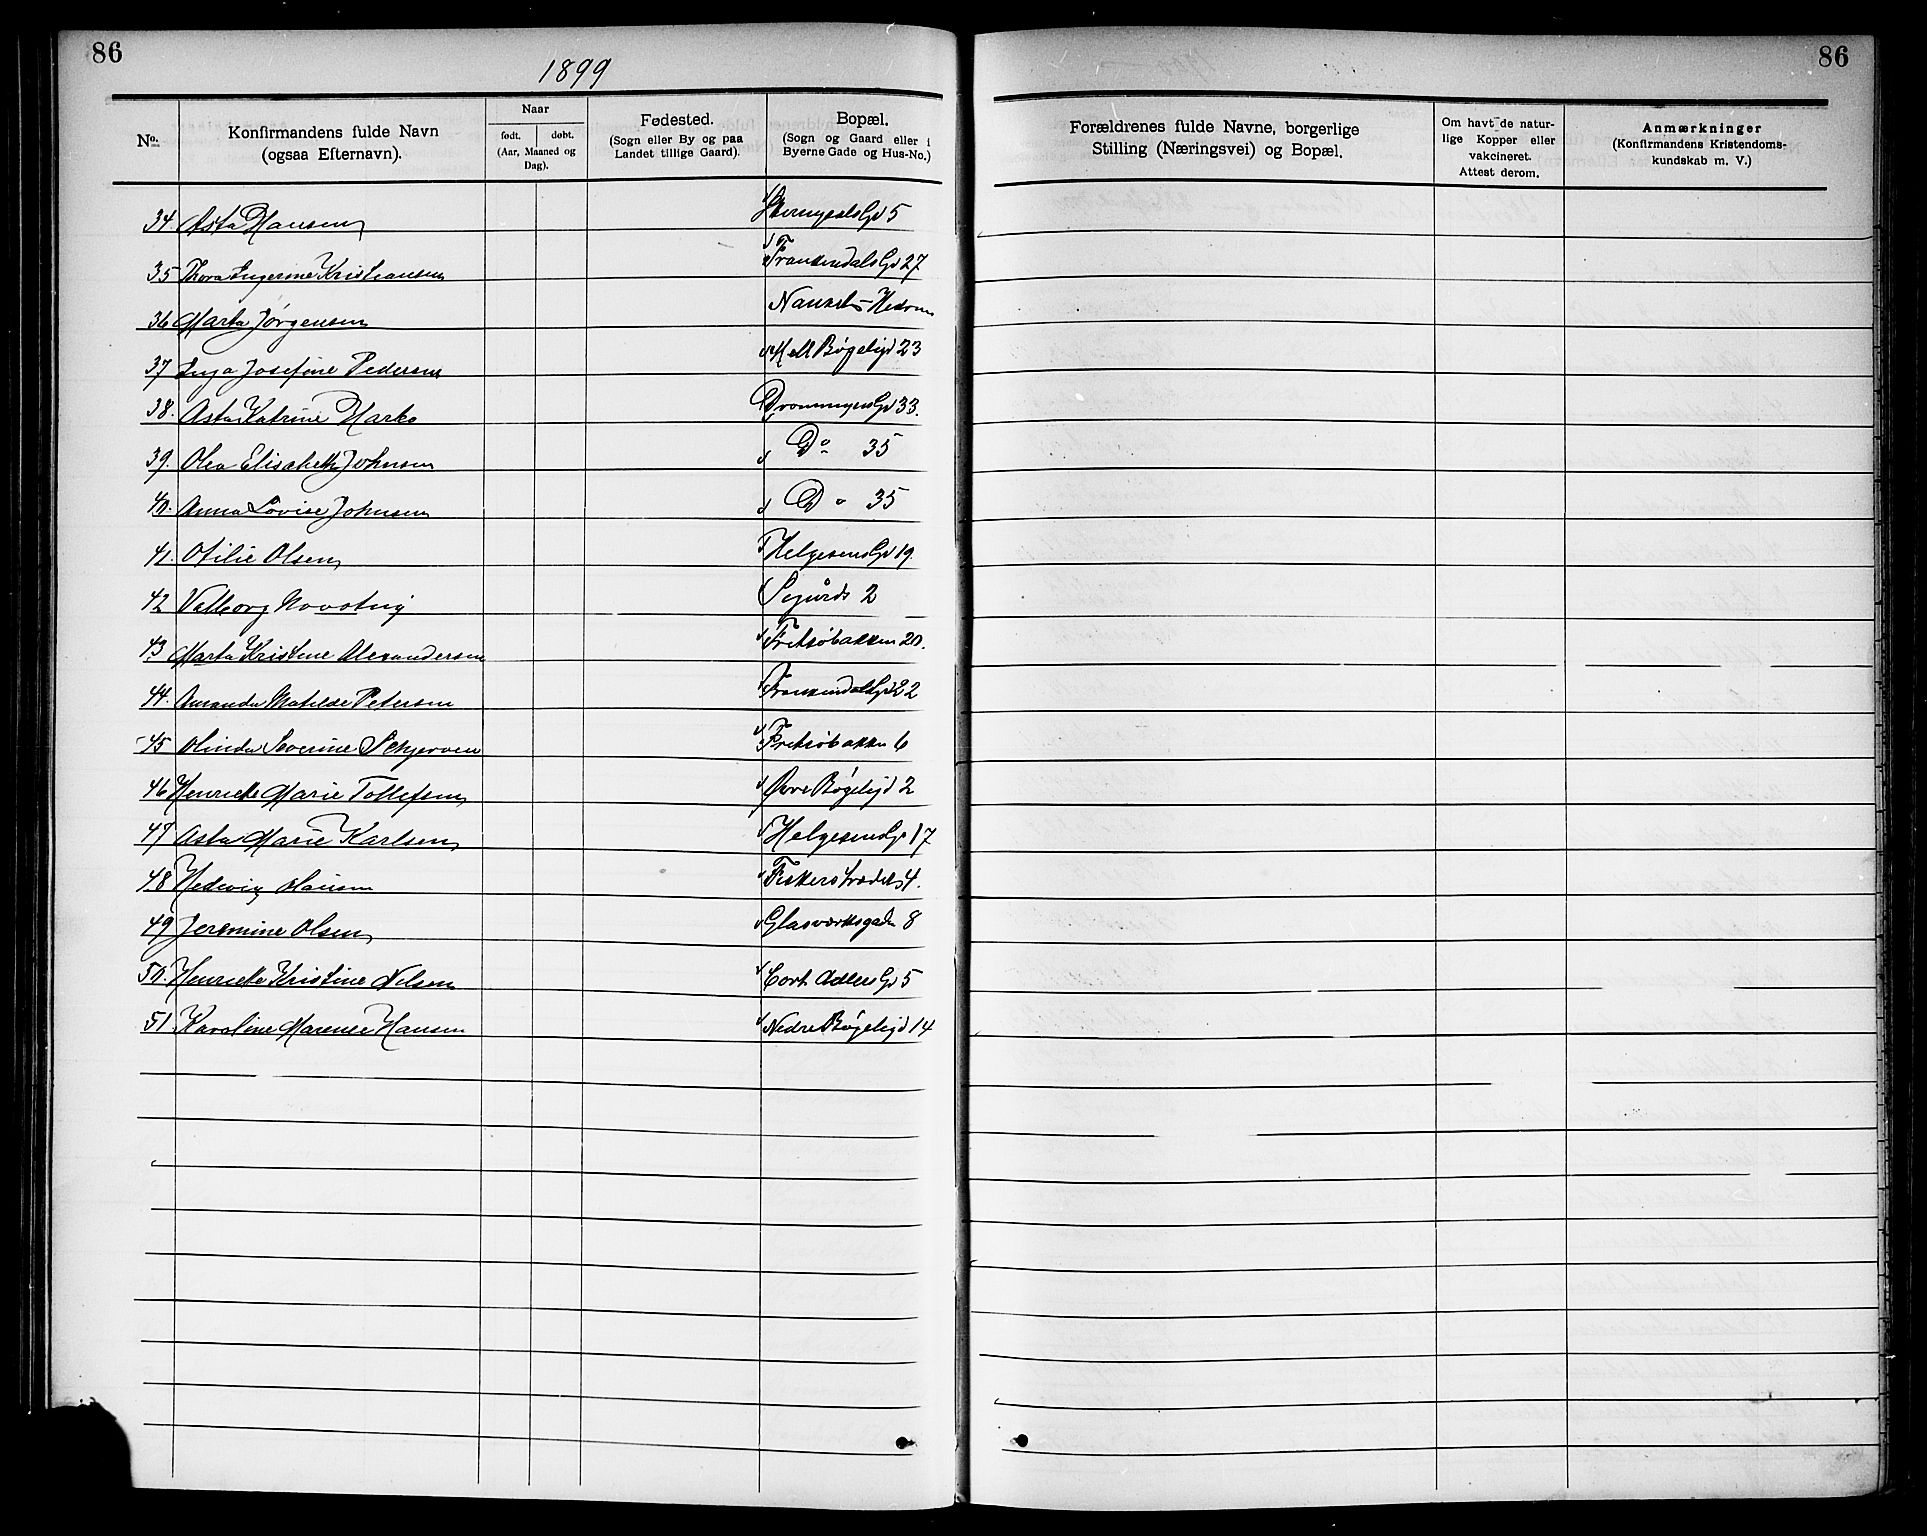 86
1899
No.
Konfirmandens fulde Navn
(ogsaa Efternavn).
Naar
født. døbt.
(Aar, Maaned og
Dag).
Fødested.
(Sogn eller By og paa
Landet tillige Gaard).
Bopæl.
(Sogn og Gaard eller i
Byerne Gade og Hus-No.)
34. Asta Hansen 5
35 Thora Ingerine Kristiansen 27
36 Marta Jørgensen Nanset - Hedrum
37 Inga Josefine Pedersen Mell Bøgeligd 23
38. Asta Katrine Dronningens Gd 33.
39. Olea Elisabeth Johnsen Do 35
40. Anna Lovise Johnsen Do 35
41. Otilie Olsen Helgesens Gd 19.
42 Valborg Novotny Sigurds 2
43 Marta Kristine Alexandersen Fritsøbakken 20.
44. Amanda Matilde Petersen 22
45 Olinda Severine Schjerven Fritsøbakken 6
46 Henriette Marie Tollefsen Øvre Bøgeligd 2
47 Asta Marie Karlsen Helgesens G. 17
48 Hedvig Hansen Fiskerstrædet 4.
49 Jeremine Olsen Glasværksgaden 8
50. Henriette Kristine Nilsen Cort Adlers Gd 5
51. Karoline Marense Hansen Nedre Bøgeligd 14
86
Forældrenes fulde Navne, borgerlige
Stilling (Næringsvei) og Bopæl.
Om havt de natur-
lige Kopper eller
vakcineret.
Attest derom.
Anmærkninger
(Konfirmandens Kristendoms-
kundskab m. V.)